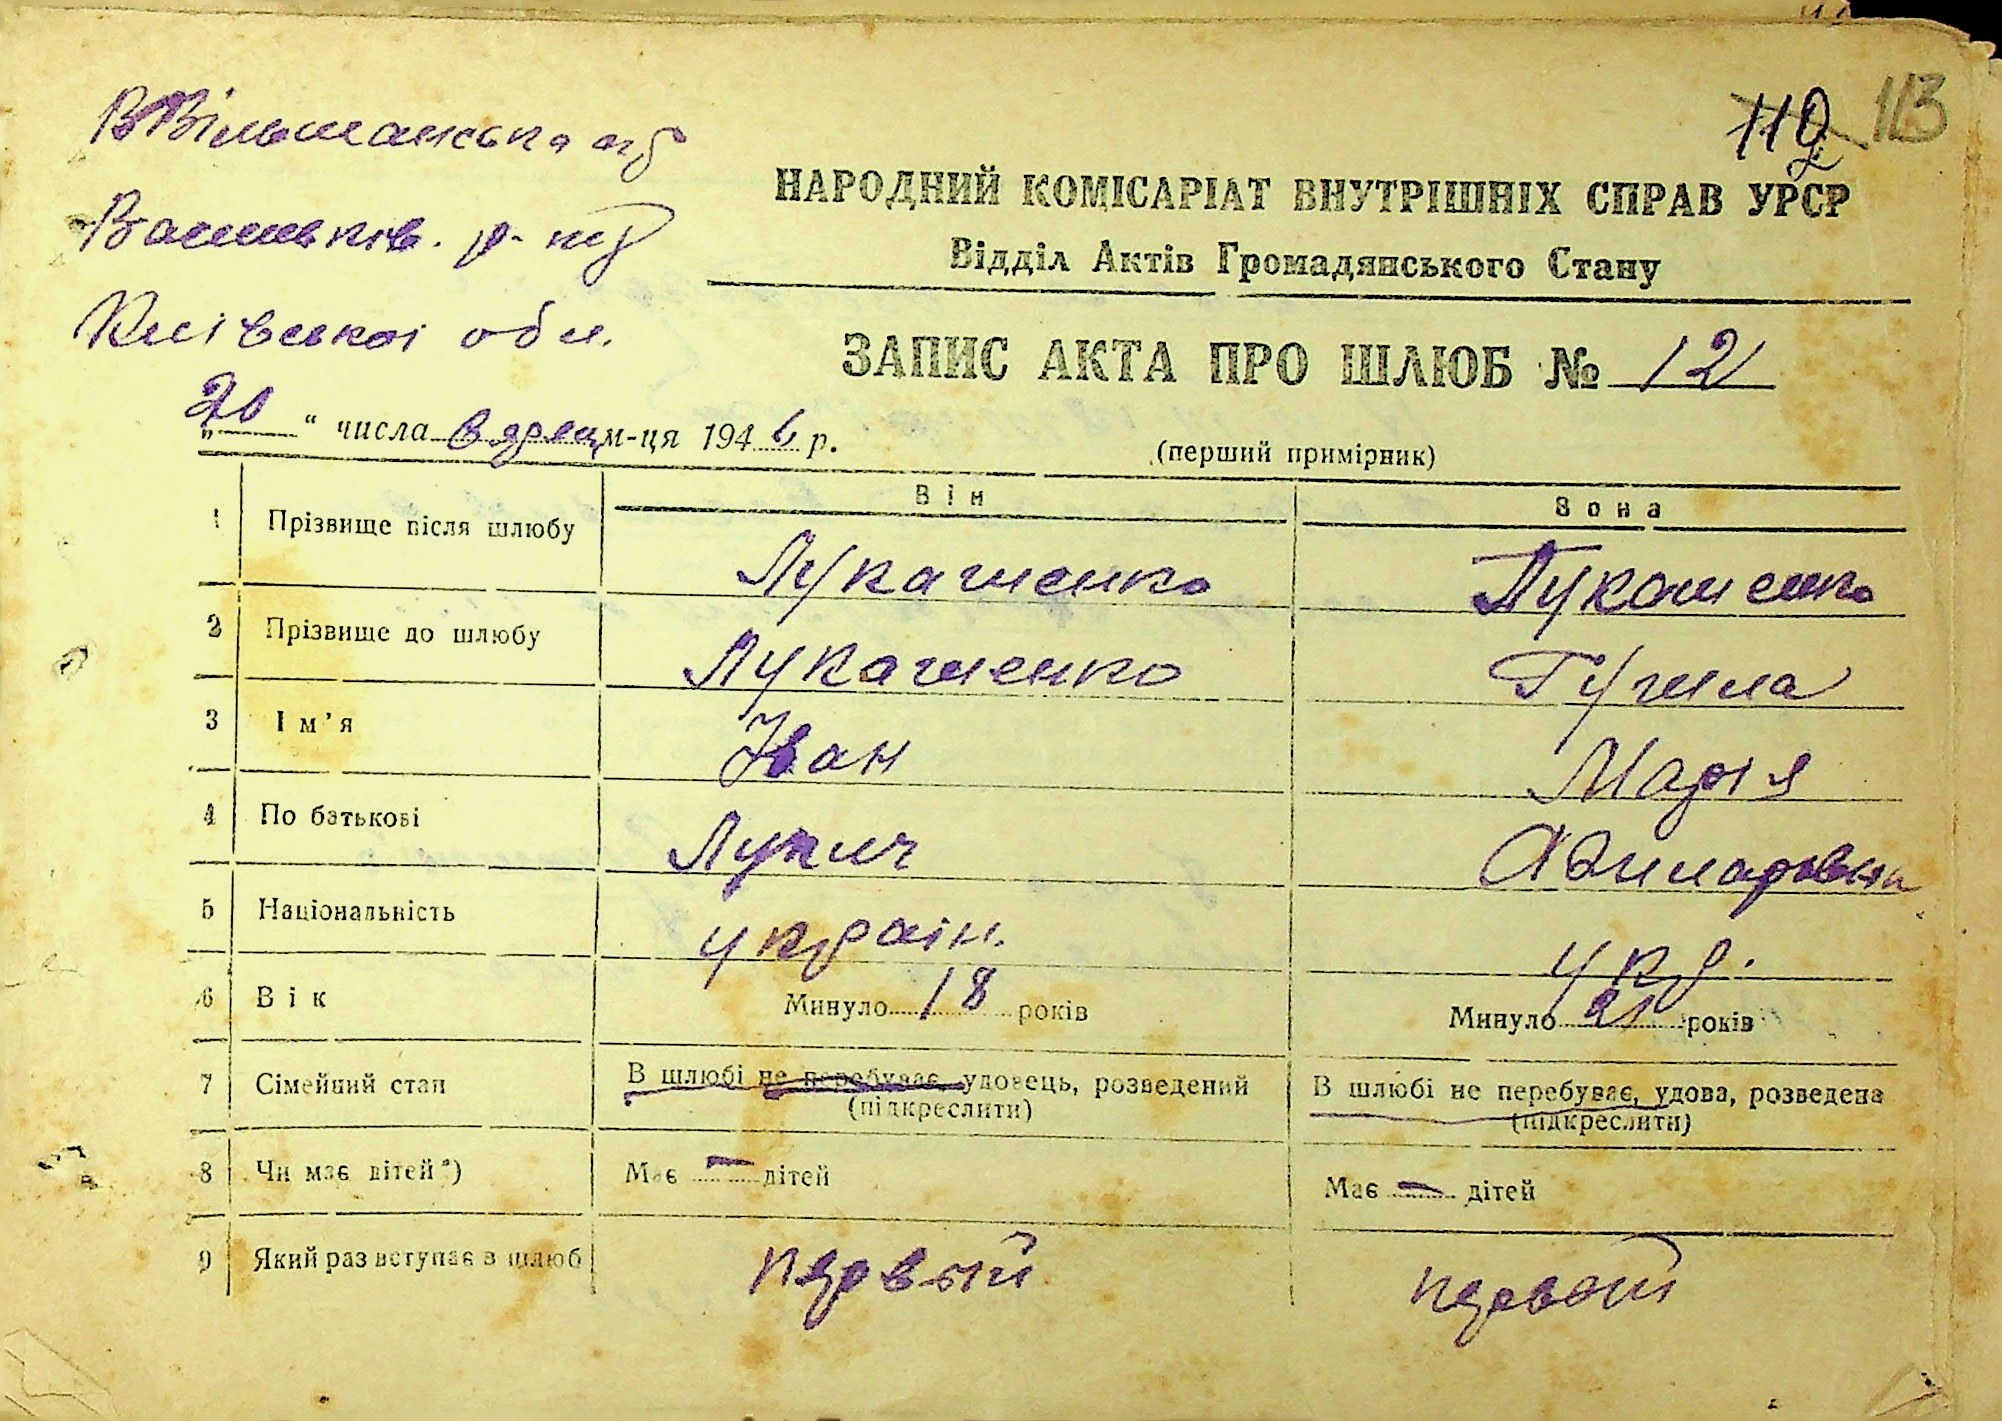 112 113
ВВільшанська с/р
Васильків. р-ну
Київської обл.
НАРОДНИЙ КОМІСАРІАТ ВНУТРІШНІХ СПРАВ УРСР
Відділ Актів Громадянського Стану
ЗАПИС АКТА ПРО ШЛЮБ № 12
„20“ числа м-ця 1946 р.
(перший примірник)
Він Вона
1 Прізвище після шлюбу Лукашенко Лукашенко
2 Прізвище до шлюбу Лукашенко
3 Ім'я Іван Марія
4 По батькові Лукич
5 Національність україн. укр.
6 Вік Минуло 18 років Минуло 21 років
7 Сімейний стан В шлюбі не перебуває, удовець, розведений В шлюбі не перебуває, удова, розведена
(підкреслити) (підкреслити)
8 Чи має дітей*) Має — дітей Має — дітей
9 Який раз вступає в шлюб первый первый